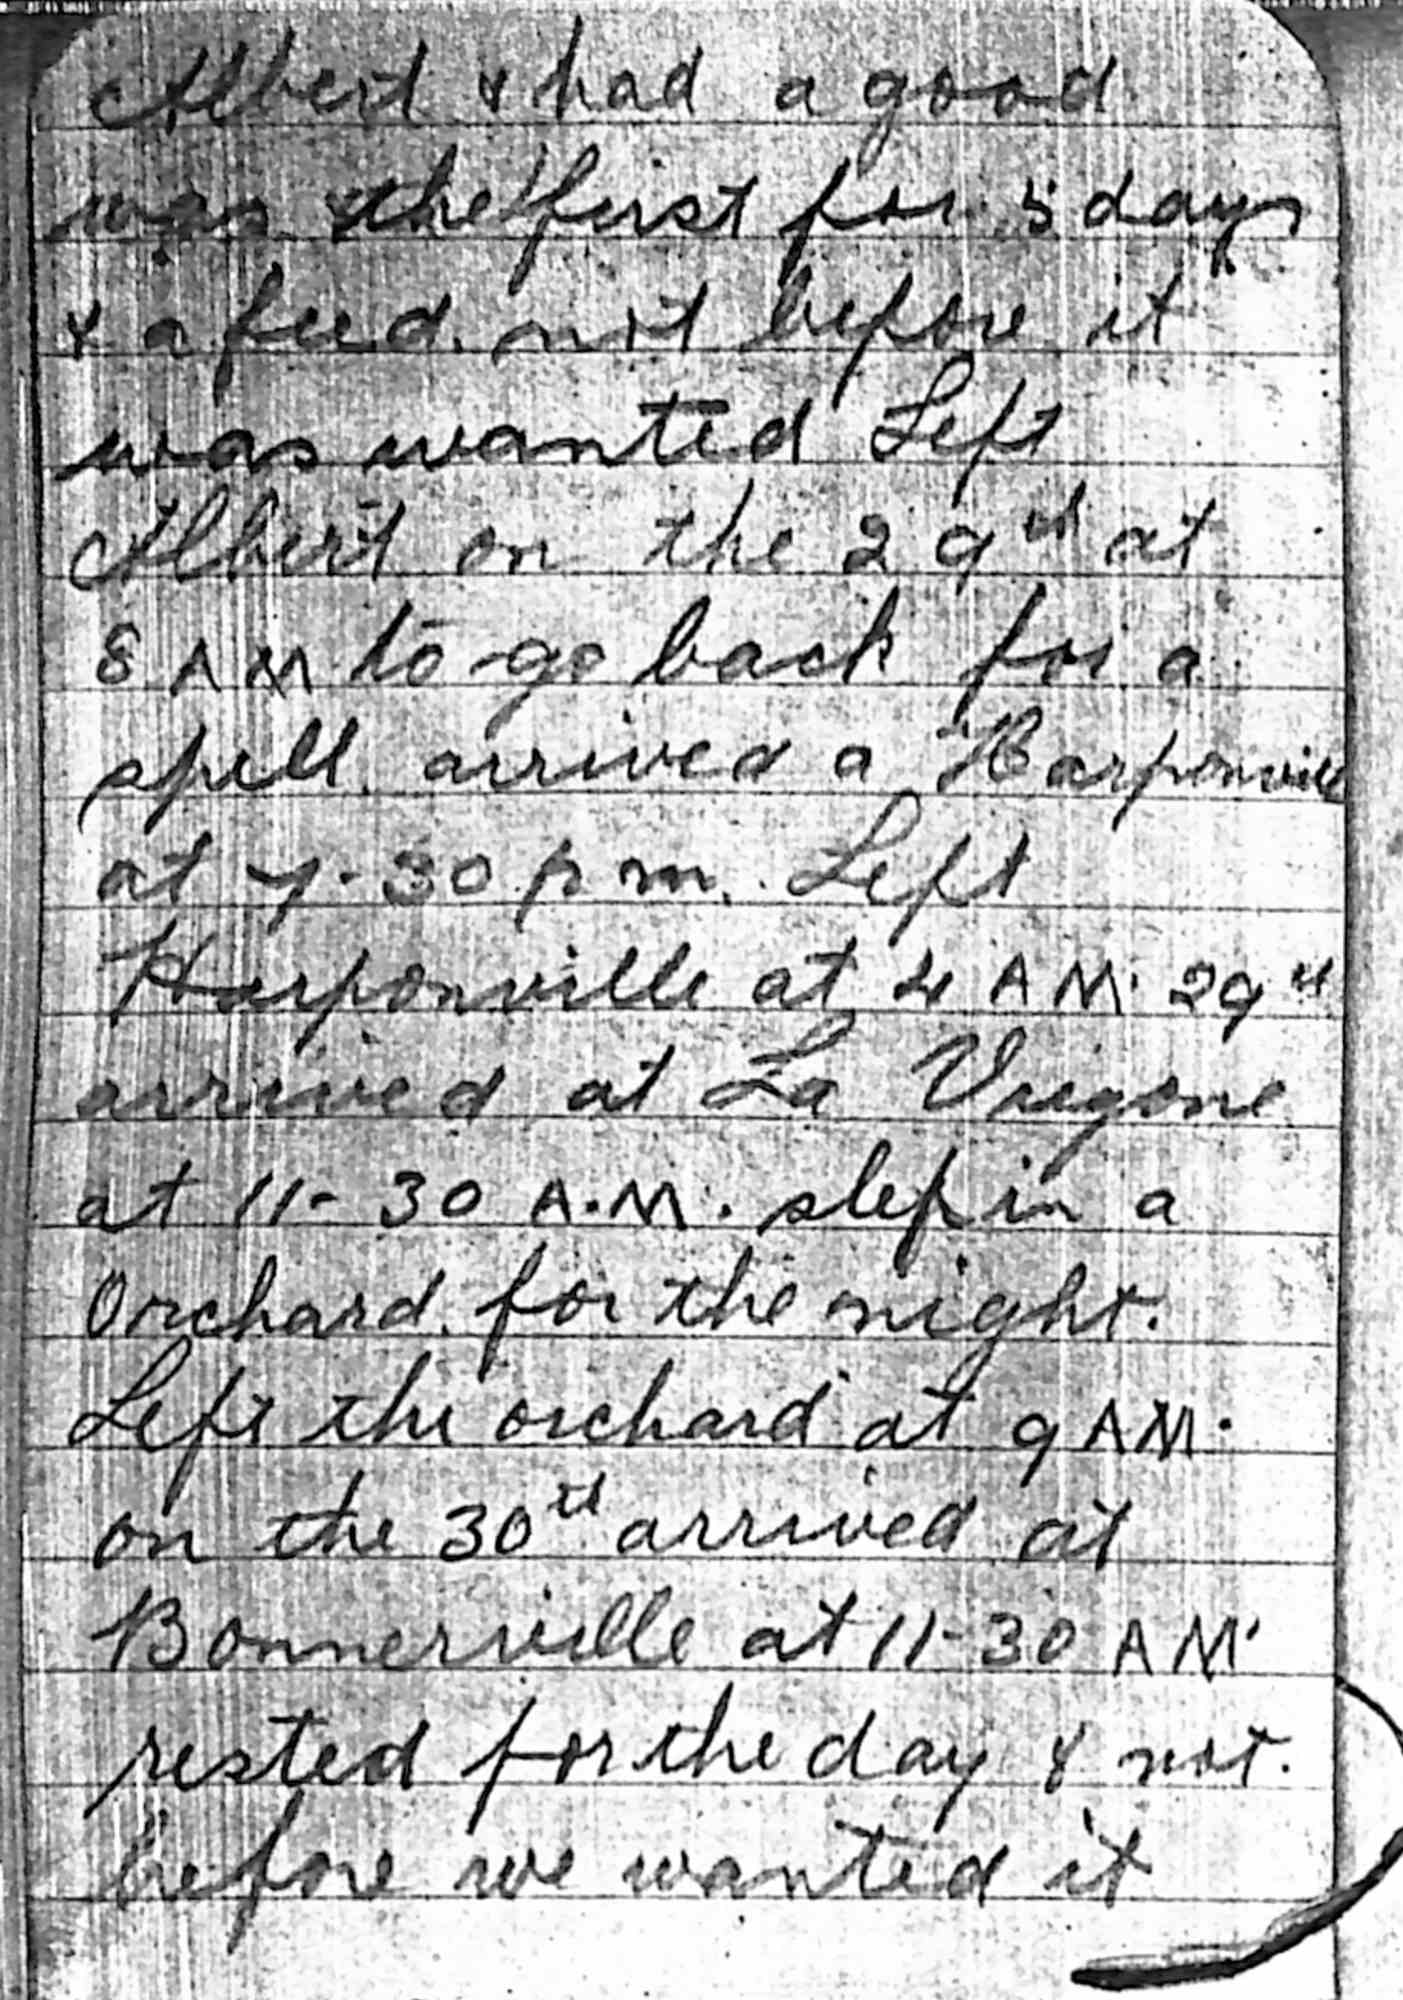 Albert & had a good
was the first for 5 days
& a feed. not before it
was wanted Left
Albert on the 29th at
8 AM to go back for a
spell. arrived a Harponville
at 7-30 pm. Left
Harponville at 4 AM. 29th
arrived at La Vicgone
at 11-30 A.M. slep in a
Orchard. for the night.
Left the orchard at 9 AM.
on the 30th arrived at
Bonnerville at 11-30 AM.
rested for the day & not.
before we wanted it